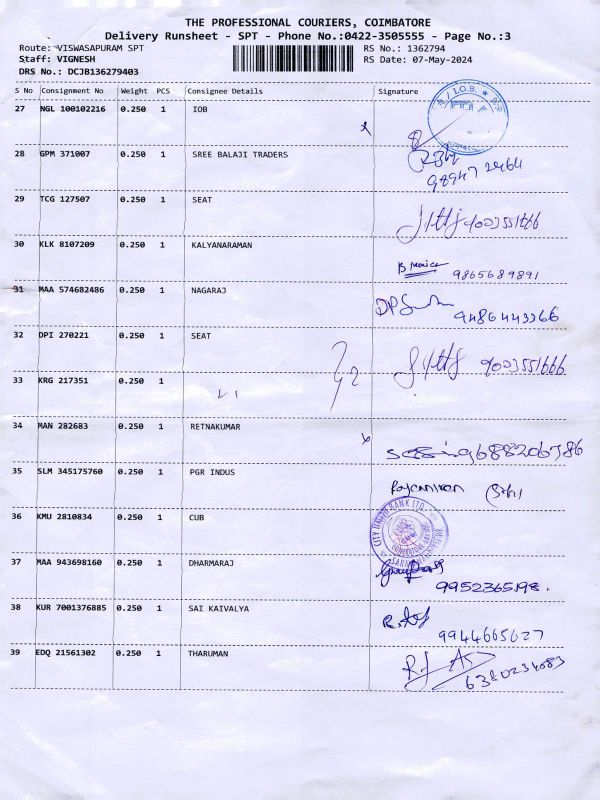 THE PROFESSIONAL COURIERS, COIMBATORE
Delivery Runsheet - SPT - Phone No.:0422-3505555 - Page No.:3
Route: VISWASAPURAM SPT RS No.: 1362794
Staff: VIGNESH RS Date: 07-May-2024
DRS No.: DCJB136279403
S No Consignment No Weight PCS Consignee Details Signature
27 NGL 100102216 0.250 1 IOB
I.O.B.
28 GPM 371007 0.250 1 SREE BALAJI TRADERS
98947 2464
29 TCG 127507 0.250 1 SEAT
9003551666
30 KLK 8107209 0.250 1 KALYANARAMAN
9865689891
31 MAA 574682486 0.250 1 NAGARAJ
9486443366
32 DPI 270221 0.250 1 SEAT
9003551666
33 KRG 217351 0.250 1
34 MAN 282683 0.250 1 RETNAKUMAR
35 SLM 345175760 0.250 1 PGR INDUS
36 KMU 2810834 0.250 1 CUB
CITY UNION BANK LTD.
37 MAA 943698160 0.250 1 DHARMARAJ
9952365198.
38 KUR 7001376885 0.250 1 SAI KAIVALYA
9944665627
39 EDQ 21561302 0.250 1 THARUMAN
6380234083